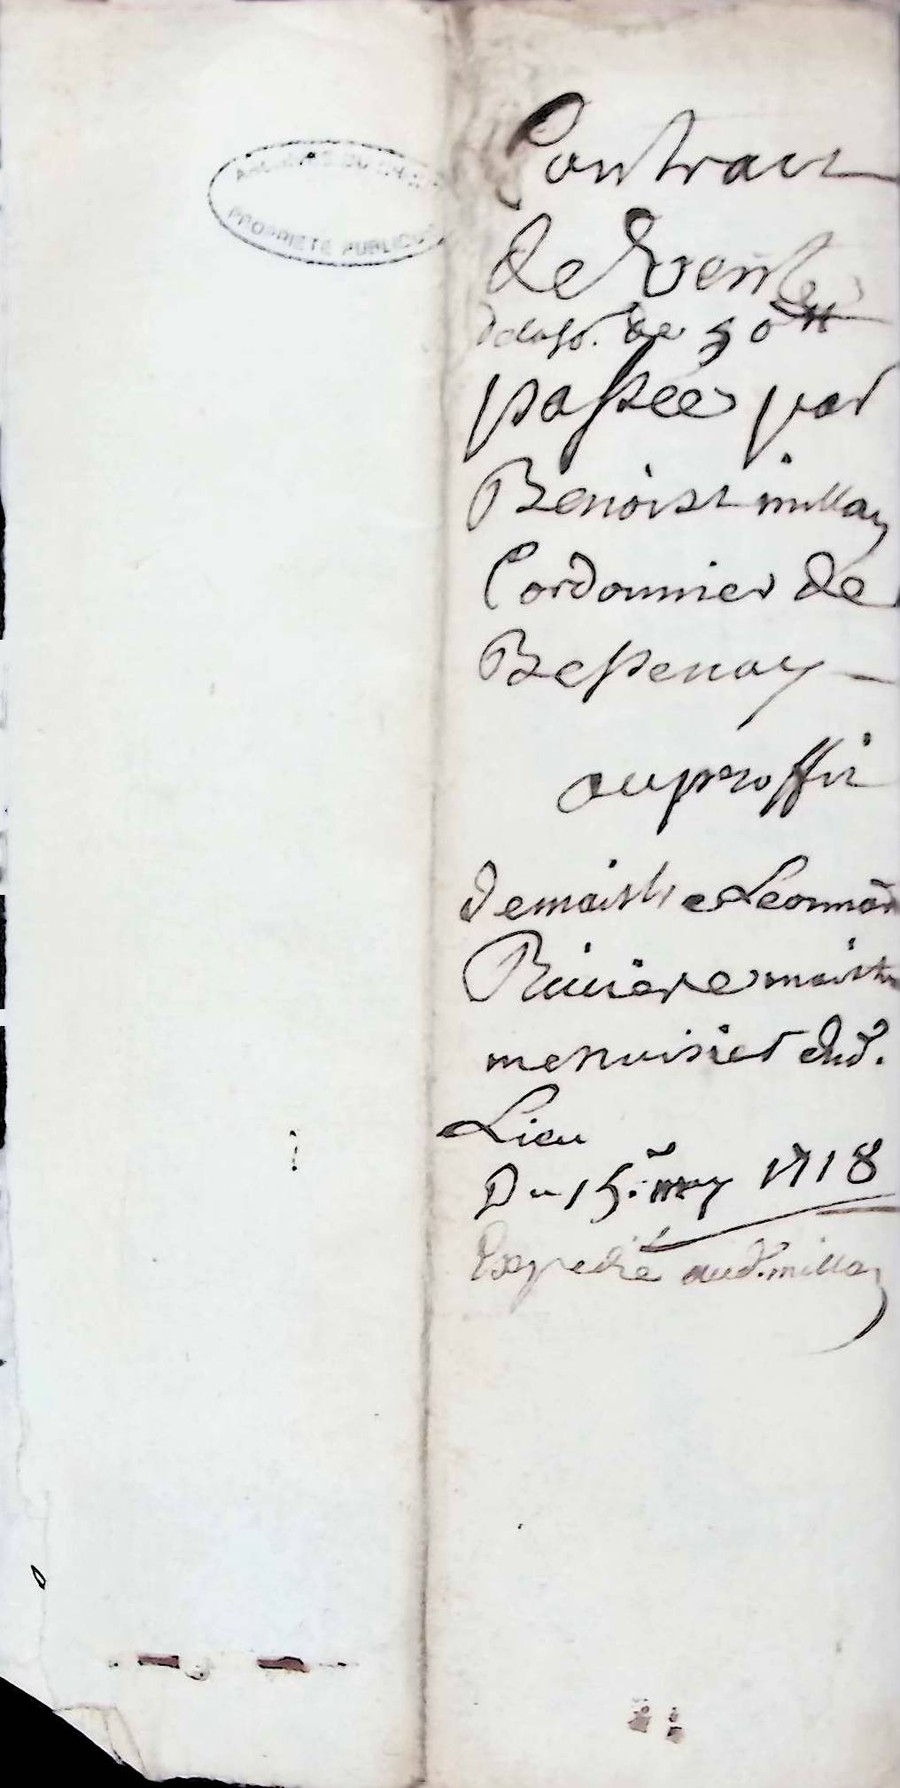 ARCHIVES DU
PROPRIETE PUBLIQUE
Contract
de Vente
de 50 ₶
passée par
Benoist millan
Cordonnier de
Bessenay
au proffit
de maistre Leonnard
Riviere maistre
menuisier dud.
Lieu
Du 15.e may 1718
Expedié aud. millan